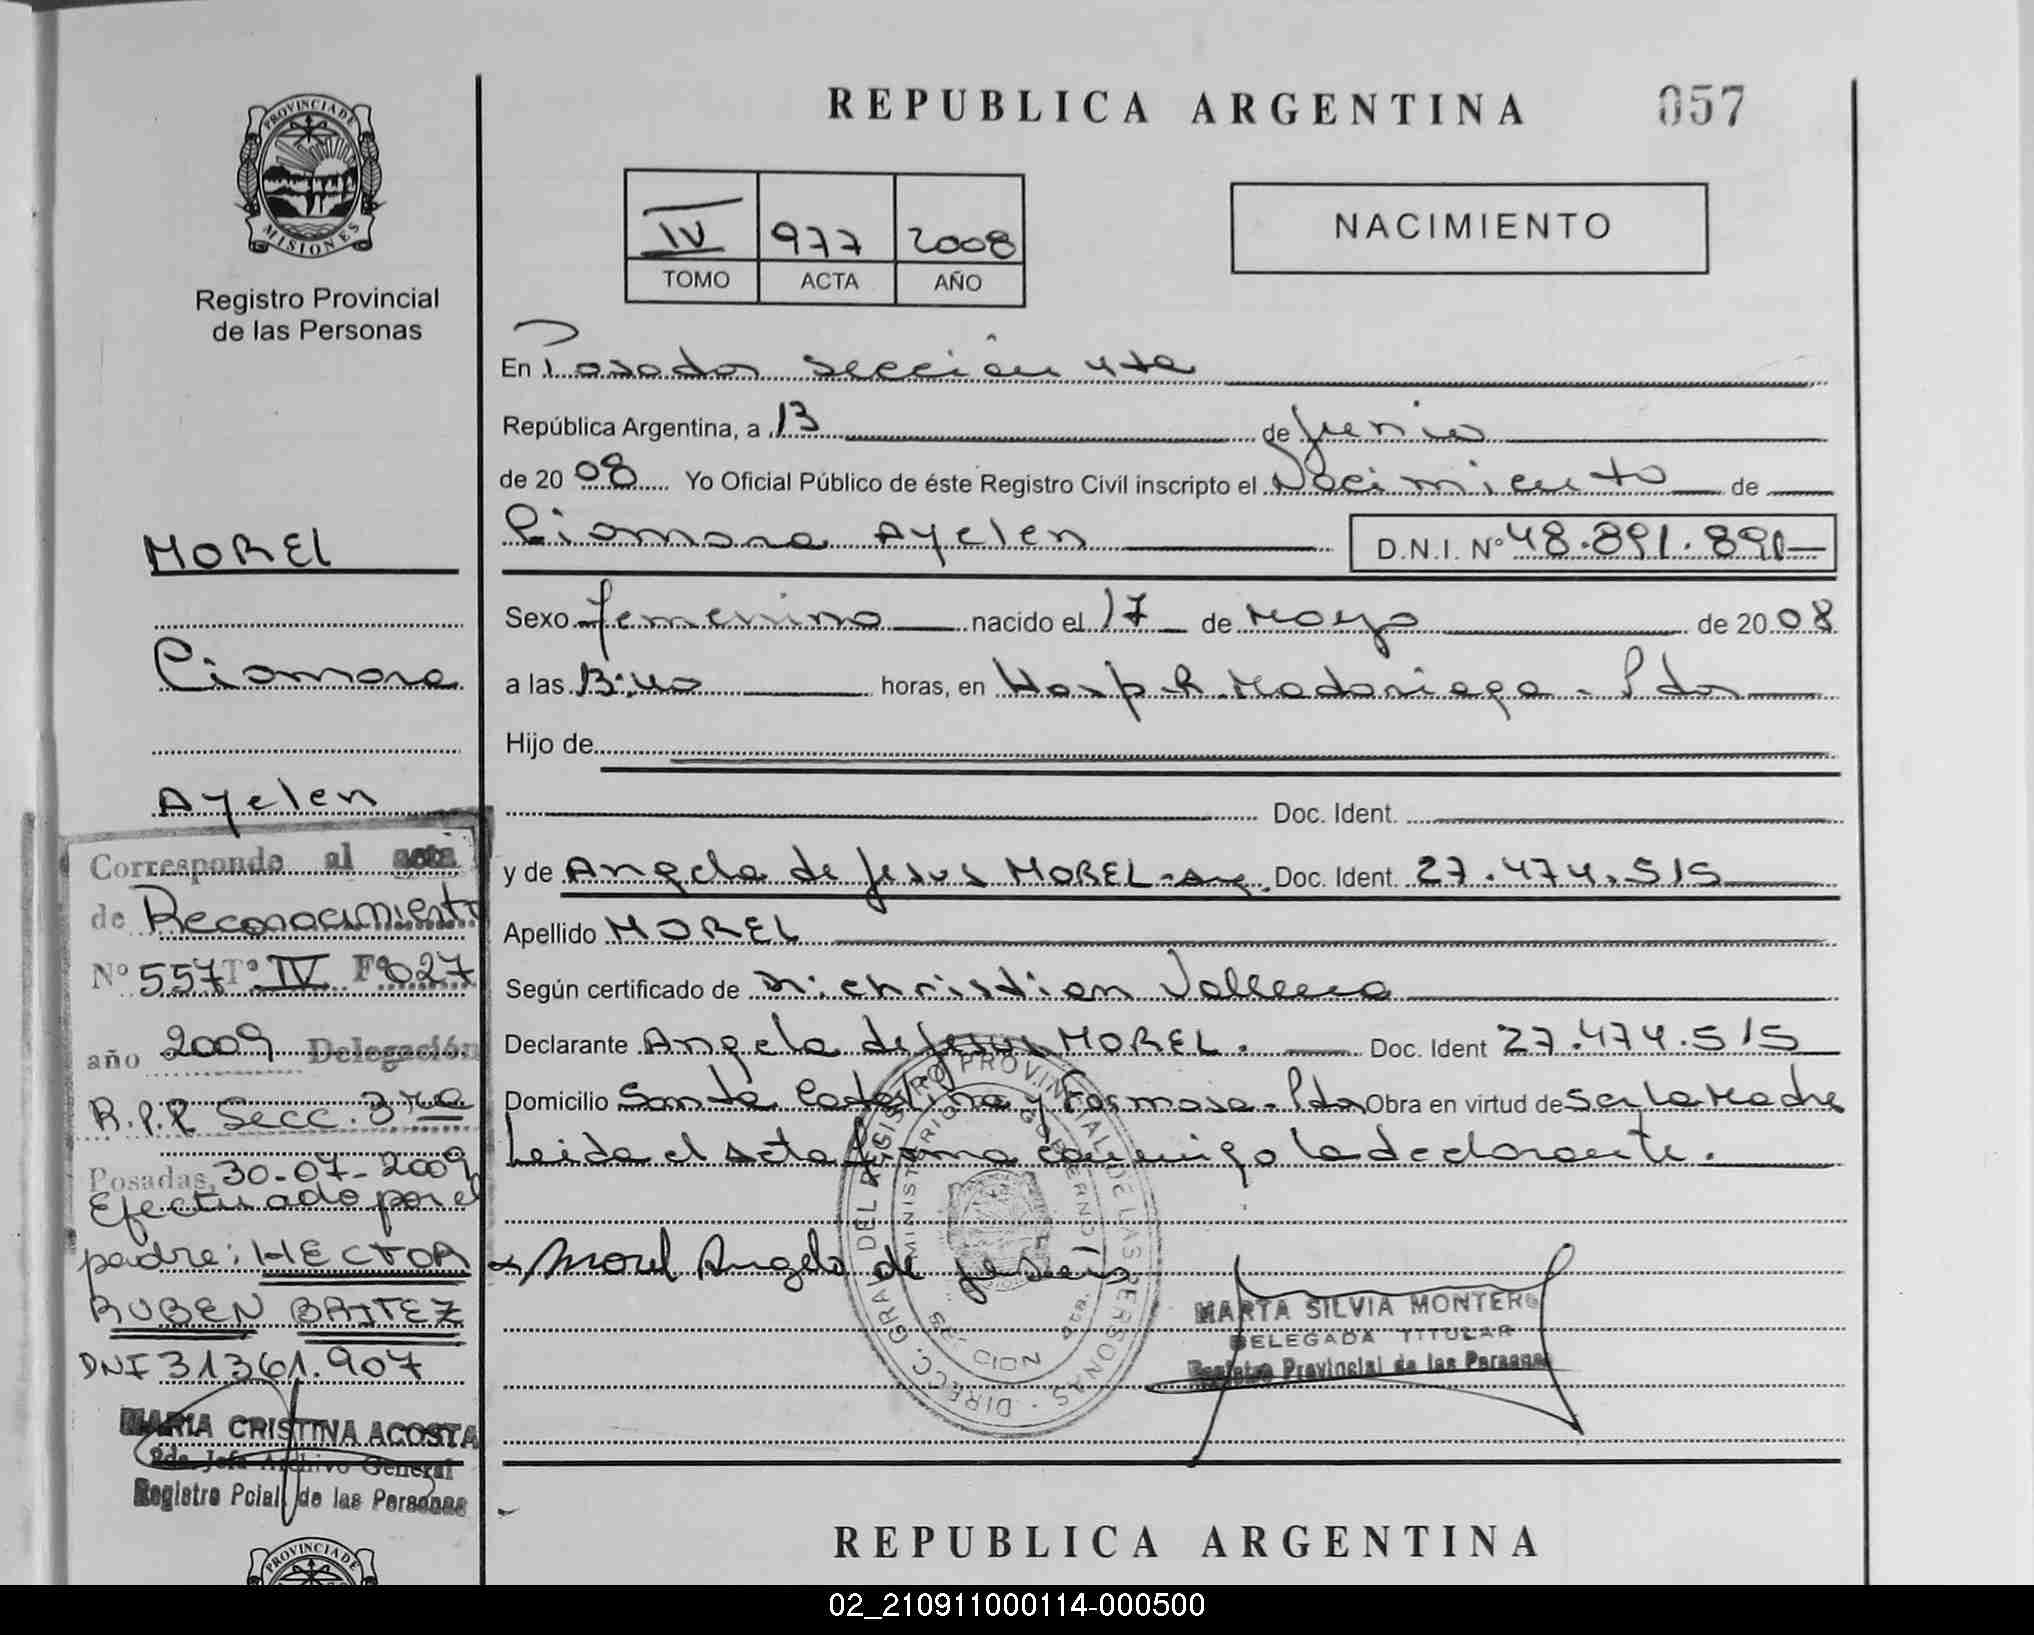 REPUBLICA ARGENTINA
057
PROVINCIA DE
MISIONES
Registro Provincial
de las Personas
IV 977 2008
TOMO ACTA AÑO
NACIMIENTO
En Posadas sección 4ta
República Argentina, a 13 de Junio
de 2008 Yo Oficial Público de éste Registro Civil inscripto el Nacimiento de
Ciomara Ayelen D.N.I. Nº 48.891.890
Sexo femenino nacido el 17 de Mayo de 2008
a las 13:40 horas, en Hosp. R. Madariaga - Pdas
Hijo de
Doc. Ident.
y de Angela de Jesus MOREL - Arg. Doc. Ident. 27.474.515
Apellido MOREL
Según certificado de Dr. christian
Declarante Angela de Jesus MOREL. Doc. Ident 27.474.515
Domicilio Santa Catalina y Formosa - Pdas Obra en virtud de ser la Madre
Leida el Acta firma conmigo la declarante.
Morel Angela de jesus
DIRECC. GRAL. DEL REGISTRO PROVINCIAL DE LAS PERSONAS
MINISTERIO GOBIERNO
MARTA SILVIA MONTERO
DELEGADA TITULAR
Registro Provincial de las Personas
MOREL
Ciomara
Ayelen
Corresponde al acta
de Reconocimiento
Nº 557 Tº IV Fº 027
año 2009 Delegación
R.P.P. Secc. 3ra
Posadas, 30-07-2009
Efectuado por el
padre: HECTOR
RUBEN BRITEZ
DNI 31361.907
MARIA CRISTINA ACOSTA
2da. Jefa Archivo General
Registro Pcial. de las Personas
PROVINCIA DE
REPUBLICA ARGENTINA
02_210911000114-000500